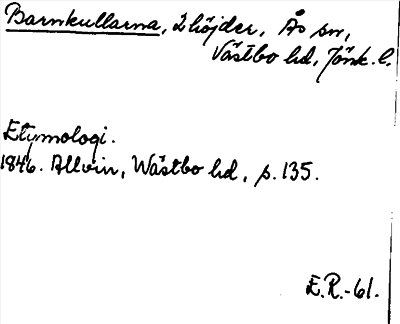 Barnkullarna, 2 höjder, Ås sn,
Västbo hd, Jönk. l.
Etymologi.
1846. Allvin, Wästbo hd, s. 135.
E.R.-61.